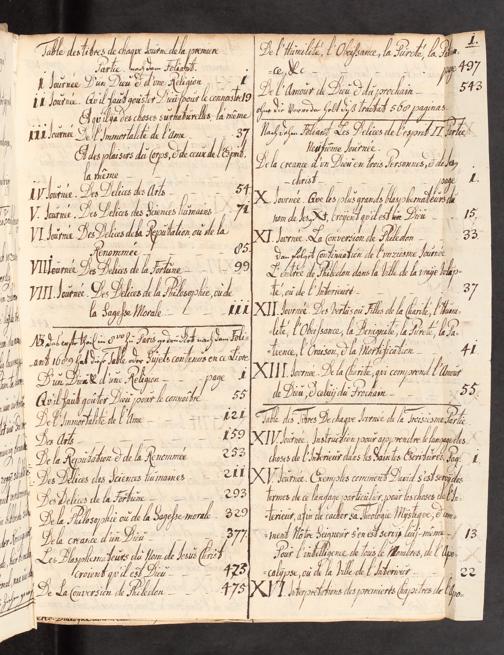 Table des titres de chaque Journée de la premiere
Partie nach dem Foliant.
I Journée D'un Dieu & d'une Religion 1
II Journée Qu'il faut gouster Dieu pour le connaistre 19
Et qu'il a des choses surnaturelles, la même
III Journée De l'Immortalité de l'Ame 37
Et des plaisirs du Corps, & de ceux de l'Esprit,
la même
IV Journée. Des Delices des Arts 54
V. Journée. Des Delices des Sciences humaines 71
VI Journée Des Delices de la Reputation ou de la
Renommée 85.
VII Journée Des Delices de la Fortune 99
VIII. Journée. Des Delices de la Philosophie, ou de
la Sagesse Morale 111
D'un Dieu & d'une Religion page 1
Qu'il faut goûter Dieu pour le connoître 55
De l'Immortalité de l'Ame 121
Des Arts 159
De la Reputation & de la Renommée 253
Des Delices des Sciences humaines 211
Des Delices de la Fortune 293
De la Philosophie ou de la Sagesse morale 329
De la creance d'un Dieu 377
Les Blasphemateurs du Nom de Jesus Christ
croient qu'il est Dieu 473
De la Conversion de Philedon 475
1.
De l'Humilité, l'Obeissance, la Pureté, la
-ce, &c page 497
De l'Amour de Dieu & du prochain 543
tractat 560 paginas.
Nach dem Foliant Les Delices de l'esprit II. Partie
Neufiême Journée.
De la creance d'un Dieu en trois Personnes, & de Jes.
-christ page 1.
X Journée. Que les plus grands blasphemateurs du
nom de Jes. Xt. croyent qu'il est un Dieu 15.
XI Journée. La Conversion de Philedon 33
Continuation de l'onzieme Journée
L'entrée de Philedon dans la Ville de la vraye Volup-
té, ou de l'Interieure 37
XII Journée. Des Vertus ou Filles de la Charité, l'Humi-
lité, l'Obeissance, la Benignité, la Pureté, la Pa-
tience, l'Oraison, & la Mortification 41
XIII Journée. De la Charité, qui comprend l'Amour
de Dieu, & celuy du Prochain 55.
Table des Titres De chaque Journée de la Troisieme Partie
XIV Journée. Instruction pour apprendre le langage des
choses de l'Interieur dans les Saintes Escritures. Pag. 1.
XV Journée. Exemples comment David s'est servy des
termes de ce langage particulier, pour les choses de l'In-
terieur, afin de cacher sa Theologie Mystique, & com-
ment Nôtre Seigneur s'en est servy luy-même 13
Pour l'intelligence de tous les Nombres, de l'Apo-
calypse, ou de la Ville de l'Interieur 22
XVI Interpretations des premiers Chapitres de l'Apo-